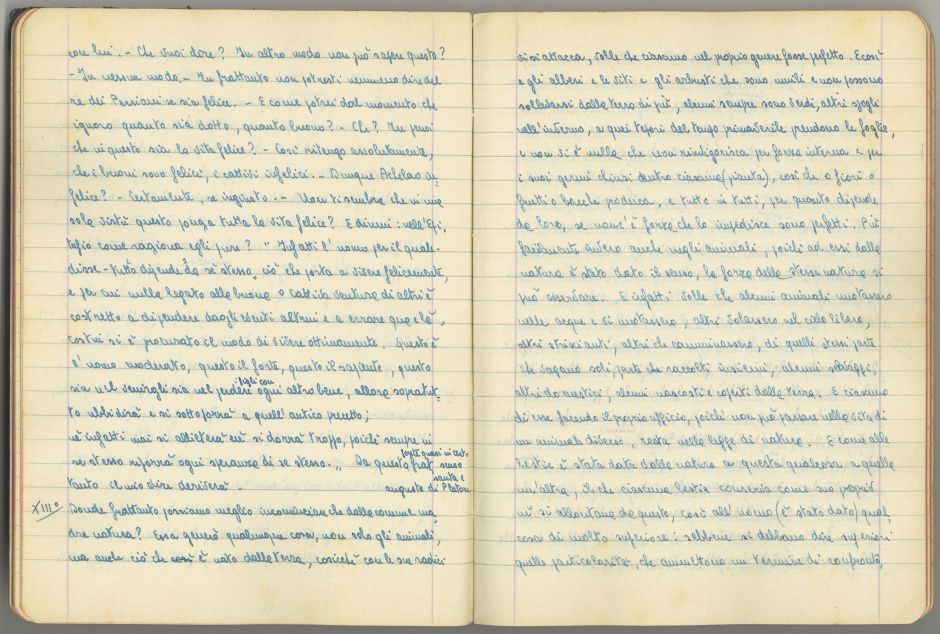 con lui. - Che vuoi dire? In altro modo non può sapere questo?
- In nessun modo. - In frattanto non potresti nemmeno dire del
re dei Persiani se sia felice. - E come potrei dal momento che
ignoro quanto sia dotto, quanto buono? - Che? Tu pensi
che in questo sia la vita felice? - Così ritengo assolutamente,
che i buoni sono felici, i cattivi infelici. - Dunque Achelao in-
felice? - Certamente, se ingiusto. - Non ti sembra che in una
sola virtù questo ponga tutta la vita felice? E dimmi: nell'Epi,
tafio come ragiona egli pure? "Infatti l'uomo per il quale-
disse - tutto dipende da sè stesso, ciò che porta a vivere felicemente,
e per cui nulla legato alla buona o cattiva ventura di altri è
costretto a dipendere dagli eventi altrui e a errare qua e là,
costui si è procurato il modo di vivere ottimamente. Questo è
l'uomo moderato, questo il forte, questo il sapiente, questo
sia nel venirgli sia nel perdere ogni altro bene, allora soprattut-
figli con
to ubbidirà e si sottoporrà a quell'antico precetto;
nè infatti mai si allieterà nè si dorrà troppo, poichè sempre in
se stesso riporrà ogni speranza di se stesso." Da questa
fonte quasi in certo
santa e
tanto il mio dire deriverà augusta di Platone
XIII° Donde frattanto possiamo meglio incominciare che dalla comune ma
dre natura? Essa generò qualunque cosa, non solo gli animali,
ma anche ciò che così è nato dalla terra, cosicchè con le sue radici
vi si attacca, volle che ciascuno nel proprio genere fosse perfetto. E così
e gli alberi e le viti e gli arbusti che sono umili e non possono
sollevarsi dalla terra di più, alcuni sempre sono verdi, altri spogli
nell'inverno, a quei tepori del tempo primaverile prendono le foglie,
e non vi è nulla che non rinvigorisca per forza interna e per
i suoi germi chiusi dentro ciascuna (pianta), così che o fiori o
frutti o bacche produca, e tutto in tutti, per quanto dipende
da loro, se non c'è forza che lo impedisce sono perfetti. Più
facilmente invero anche negli animali, poichè ad essi dalla
natura è stato dato il senso, la forza della stessa natura si
può osservare. E infatti volle che alcuni animali nuotassero
nelle acque e vi nuotassero, altri volassero nel cielo libero,
altri striscianti, altri che camminassero, di quelli stessi parte
che vagano soli, parte che raccolti insieme, alcuni selvaggi,
altri domestici, alcuni nascosti e coperti dalla terra. E ciascuno
di essi facendo il proprio ufficio, poichè non può passare nella vita di
un animale diverso, resta nella legge di natura. E come alle
bestie è stata data dalla natura a questa qualcosa a quella
un'altra, il che ciascuna bestia conserva come suo proprio
nè si allontana da questo, così all'uomo (è stato dato) qual
cosa di molto superiore: sebbene si debbano dire superiori
quelle particolarità, che ammettono un termine di confronto,